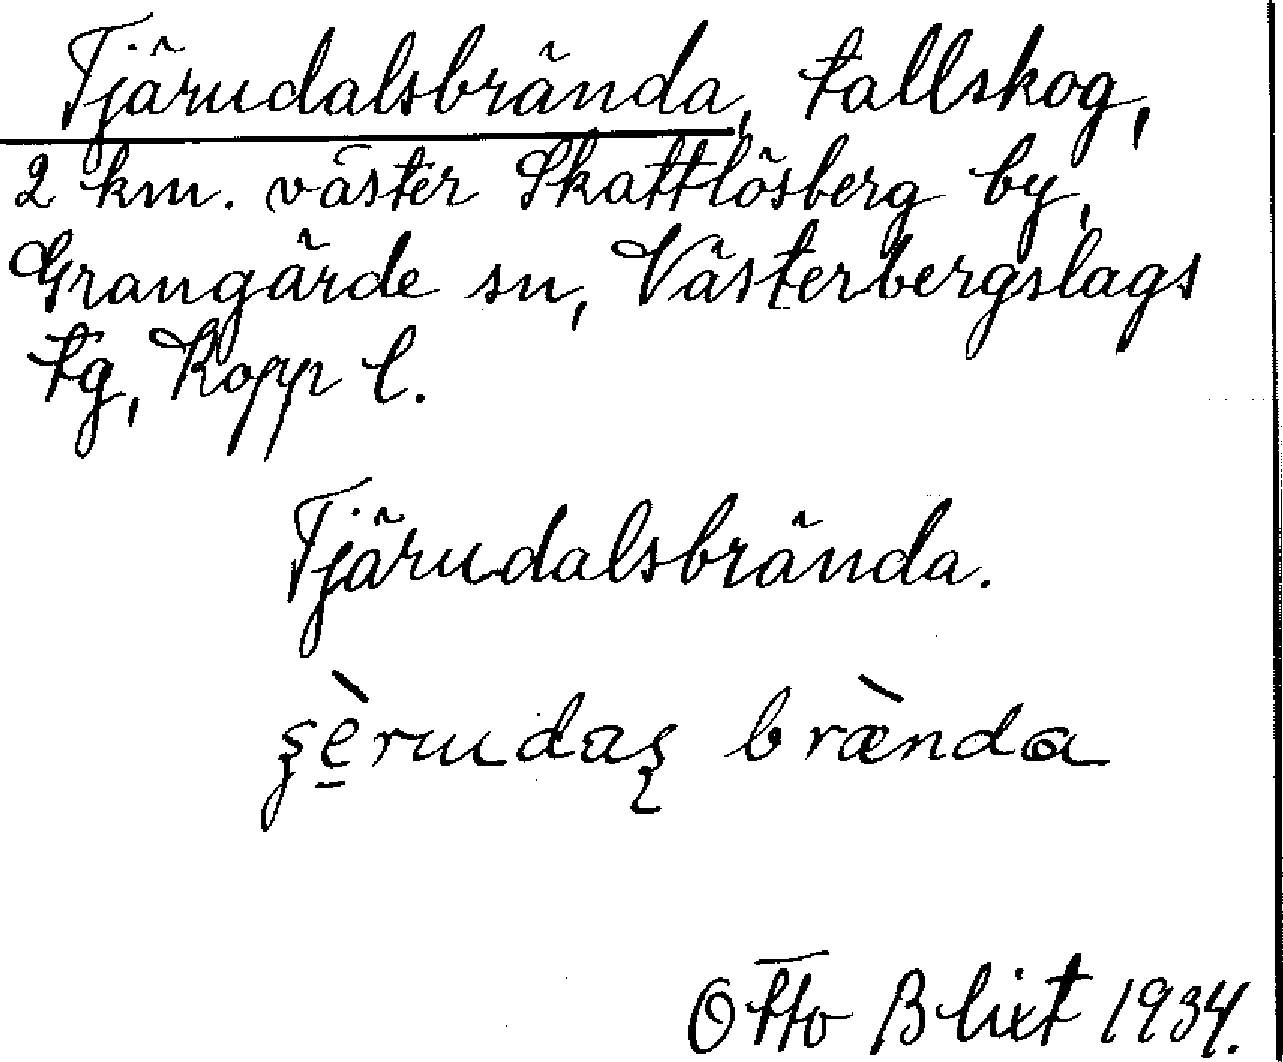 Tjärudalsbrända, tallskog,
2 km. väster Skattlösberg by,
Grangärde sn, Västerbergslags
tg, Kopp l.
Tjärudalsbrända.
brænda
Otto Blixt 1934.